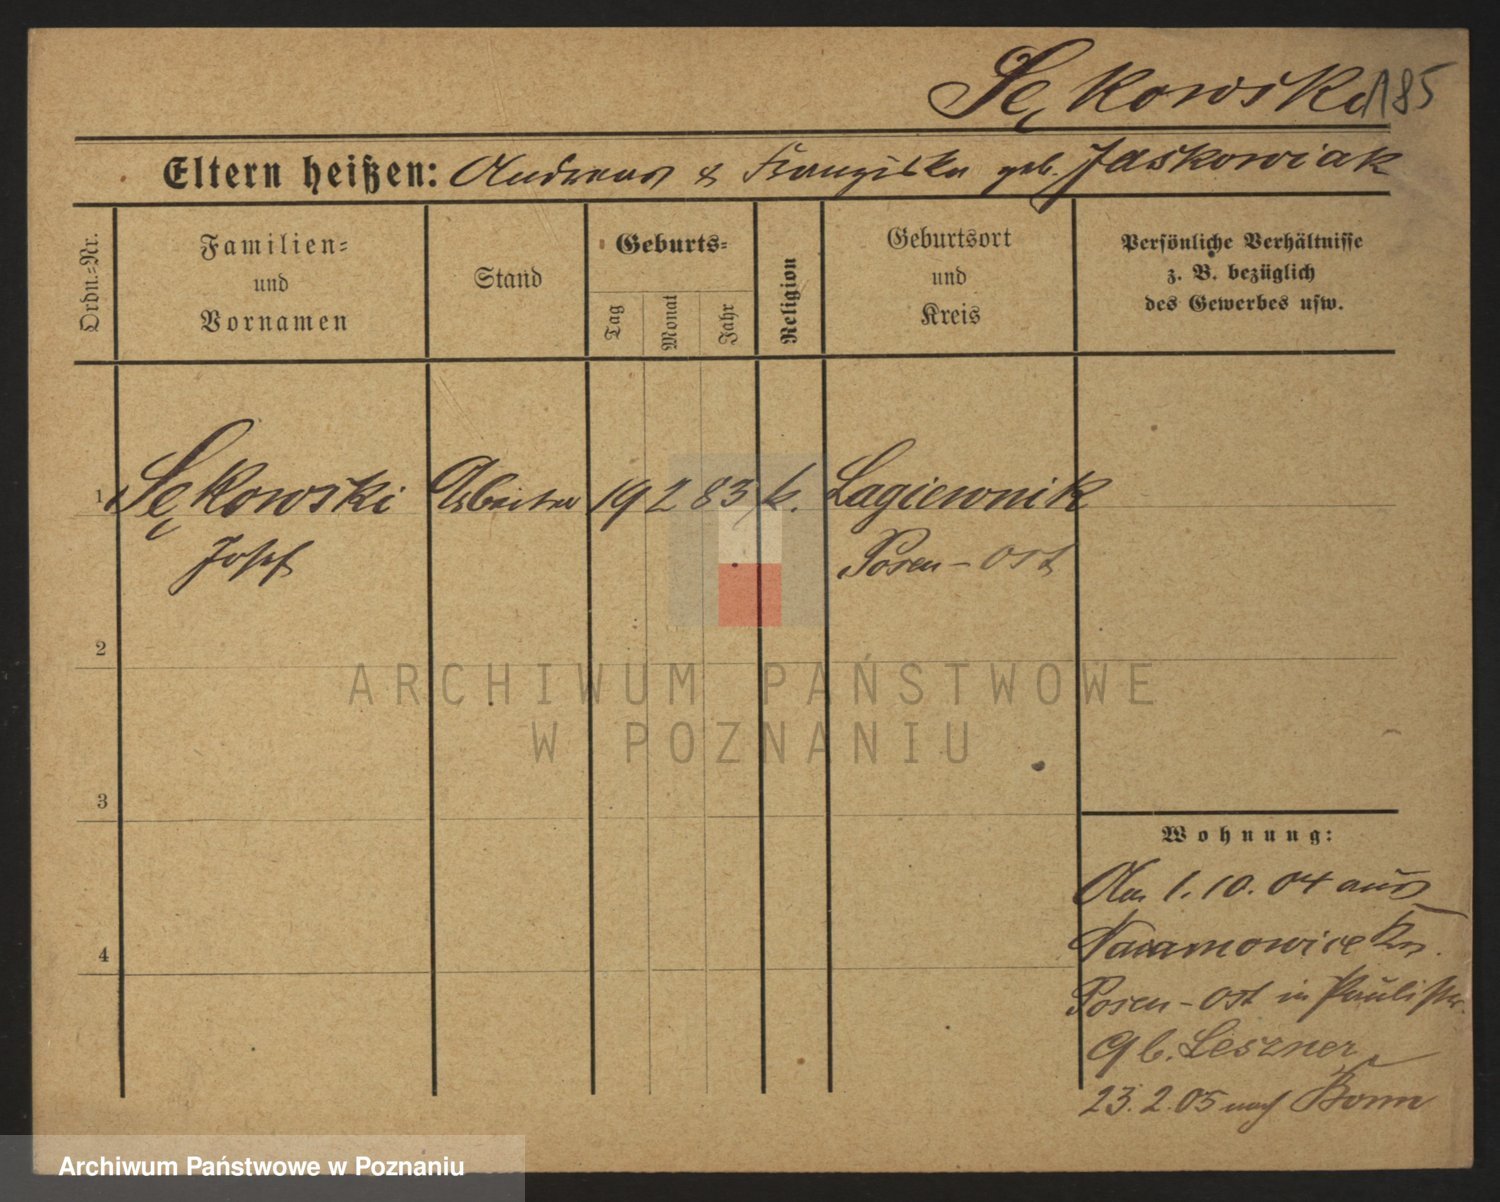 Sękowski 185
Eltern heißen: Andreas & Franziska geb. Jaskowiak
Ordn.-Nr.
Familien-
und
Vornamen
Stand
Geburts-
Tag
Monat
Jahr
Religion
Geburtsort
und
Kreis
Persönliche Verhältnisse
z. B. bezüglich
des Gewerbes usw.
1 Sękowski Arbeiter 19 2 83 k. Lagiewnik
Josef Posen-Ost
2
ARCHIWUM PAŃSTWOWE
W POZNANIU
3
4
Wohnung:
Am 1.10.04 aus
Naramowice Krs.
Posen-Ost in Paulistr.
9 b. Leszner
23.2.05 nach Bonn
Archiwum Państwowe w Poznaniu